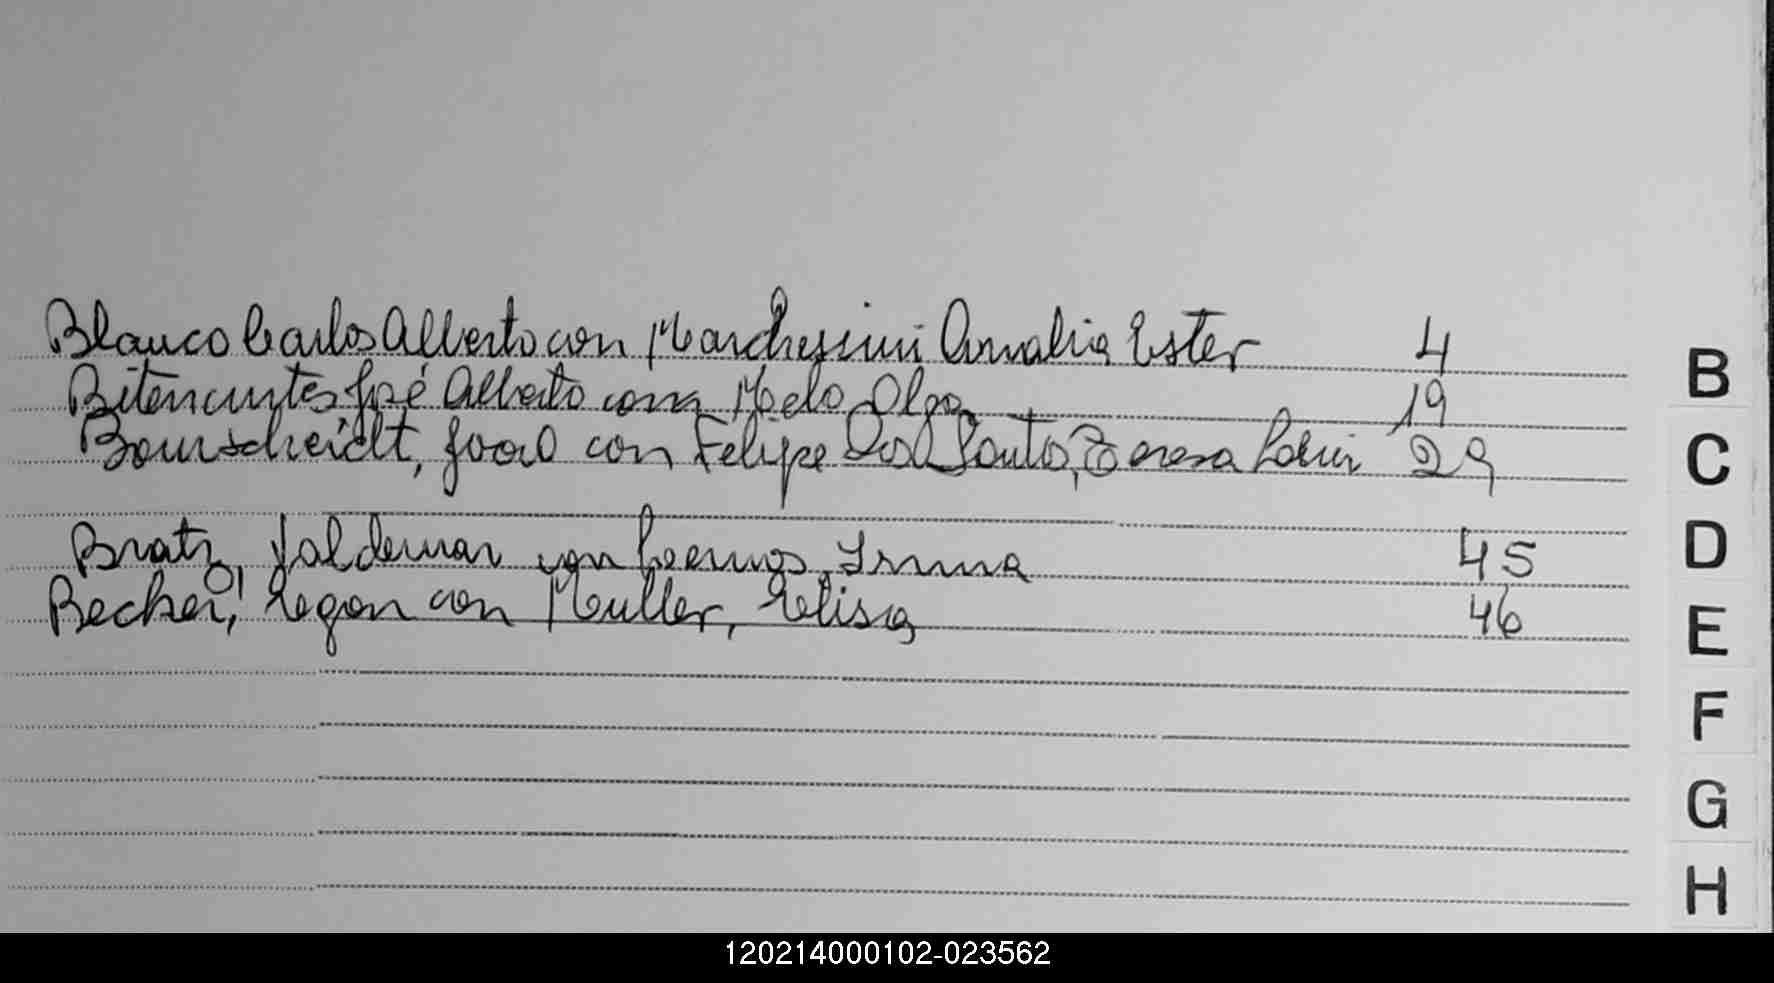 Blanco Carlos Alberto con Marchessini Amalia Ester 4
Bitencurtes José Alberto com Melo Olga 19
Bourscheidt, Joao con Felipe Dos Santos, Teresa 29
Bratz, Valdemar con Irma 45
Becker, Egon con Muller, Elisa 46
B
C
D
E
F
G
H
120214000102-023562